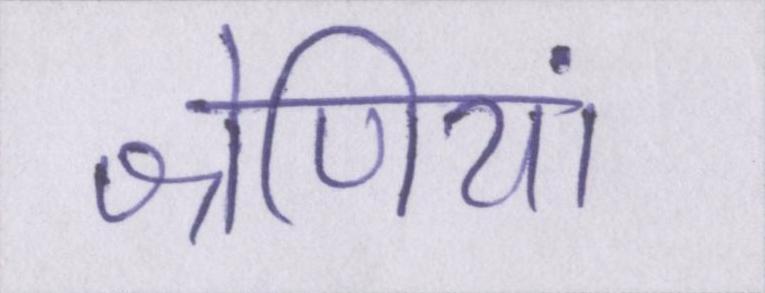 श्रेणियां